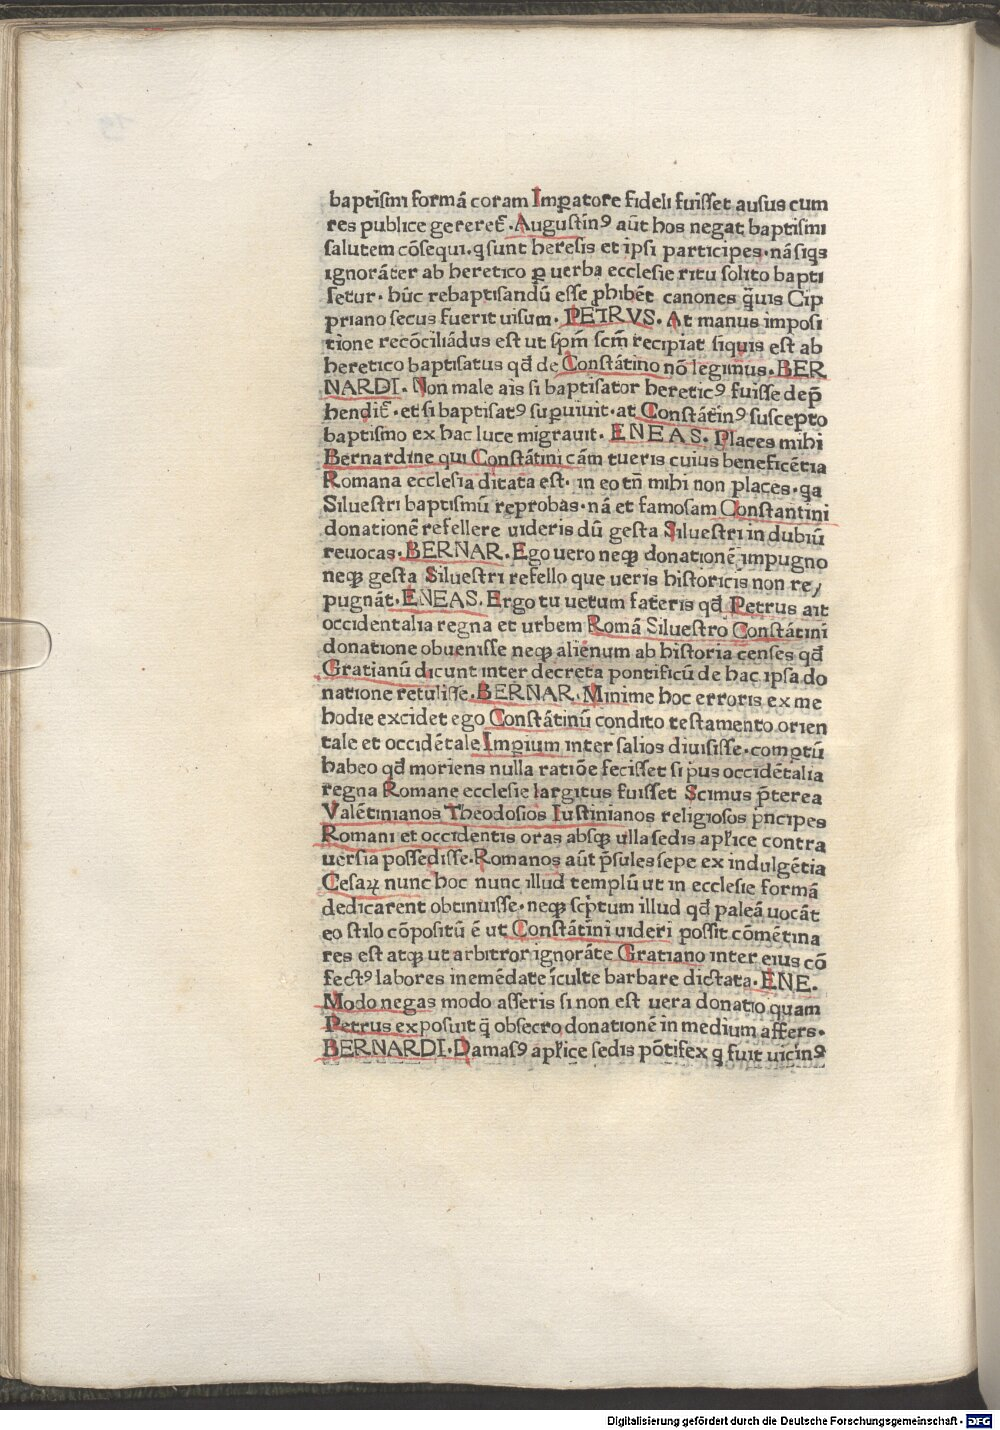 baptismi formā coram Imꝑatore fideli fuisset ausus cum
res publice gereret᷑. Augustinꝰ aūt hos negat baptismi
salutem cōsequi. q sunt heresis et ipsi participes. nā siqs
ignorāter ab heretico ꝑ uerba ecclesie ritu solito bapti
setur. hūc rebaptisandū esse ꝓhibēt canones q̄uis Cip
priano secus fuerit uisum. PETRVS. At manus imposi
tione recōciliādus est ut sp̄m sc̄m recipiat siquis est ab
heretico baptisatus qd̄ de Constātino nō legimus. BER
NARDI. Non male ais si baptisator hereticꝰ fuisse dep̄
hendit᷑. et si baptisatꝰ suꝑuiuit. at Constātinꝰ suscepto
baptismo ex hac luce migrauit. ENEAS. Places mihi
Bernardine qui Constātini cām tueris cuius beneficētia
Romana ecclesia ditata est. in eo tn̄ mihi non places. qa
Siluestri baptismū reprobas. nā et famosam Constantini
donationē refellere uideris dū gesta Siluestri in dubiū
reuocas. BERNAR. Ego uero neqꝫ donationē impugno
neqꝫ gesta Siluestri refello que ueris historicis non re/
pugnāt. ENEAS. Ergo tu uetum fateris qd̄ Petrus ait
occidentalia regna et urbem Romā Siluestro Constātini
donatione obuenisse neqꝫ alienum ab historia censes qd̄
Gratianū dicunt inter decreta pontificū de hac ipsa do
natione retulisse. BERNAR. Minime hoc erroris ex me
hodie excidet ego Constātinū condito testamento orien
tale et occidētale Imꝑium inter salios diuisisse. comꝑtū
habeo qd̄ moriens nulla ratiōe fecisset si pus occidētalia
regna Romane ecclesie largitus fuisset Scimus p̄terea
Valētinianos Theodosios Iustinianos religiosos pncipes
Romani et occidentis oras absqꝫ ulla sedis apl̄ice contra
uersia possedisse. Romanos aūt p̄sules sepe ex indulgētia
Cesaꝝ nunc hoc nunc illud templū ut in ecclesie formā
dedicarent obtinuisse. neqꝫ scptum illud qd̄ paleā uocāt
eo stilo cōpositū ē ut Constātini uideri possit cōmētina
res est atqꝫ ut arbitror ignorāte Gratiano inter eius cō
fectꝰ labores inemēdate īculte barbare dictata. ENE.
Modo negas modo asseris si non est uera donatio quam
Petrus exposuit q̄ obsecro donationē in medium affers.
BERNARDI. Damasꝰ apl̄ice sedis pōtifex q fuit uicinꝰ
Digitalisierung gefördert durch die Deutsche Forschungsgemeinschaft - DFG